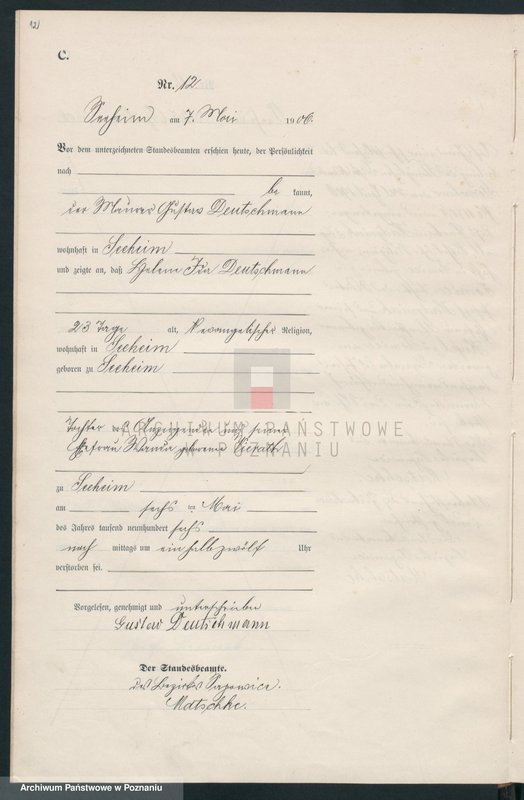 12)
C.
Nr. 12
Seeheim am 7. Mai 1906.
Vor dem unterzeichneten Standesbeamten erschien heute, der Persönlichkeit
nach
be kannt,
der Maurer Gustav Deutschmann
wohnhaft in Seeheim
und zeigte an, daß Helene Ida Deutschmann
23 Tage alt, evangelischer Religion,
wohnhaft in Seeheim
geboren zu Seeheim
ARCHIWUM PAŃSTWOWE
W POZNANIU
Tochter des Anzeigenden und seiner
Ehefrau Wanda geborene
zu Seeheim
am sechs ten Mai
des Jahres tausend neunhundert sechs
nach mittags um ein halb zwölf Uhr
verstorben sei.
Vorgelesen, genehmigt und unterschrieben
Gustav Deutschmann
Der Standesbeamte.
des Bezirks
Matschke.
Archiwum Państwowe w Poznaniu